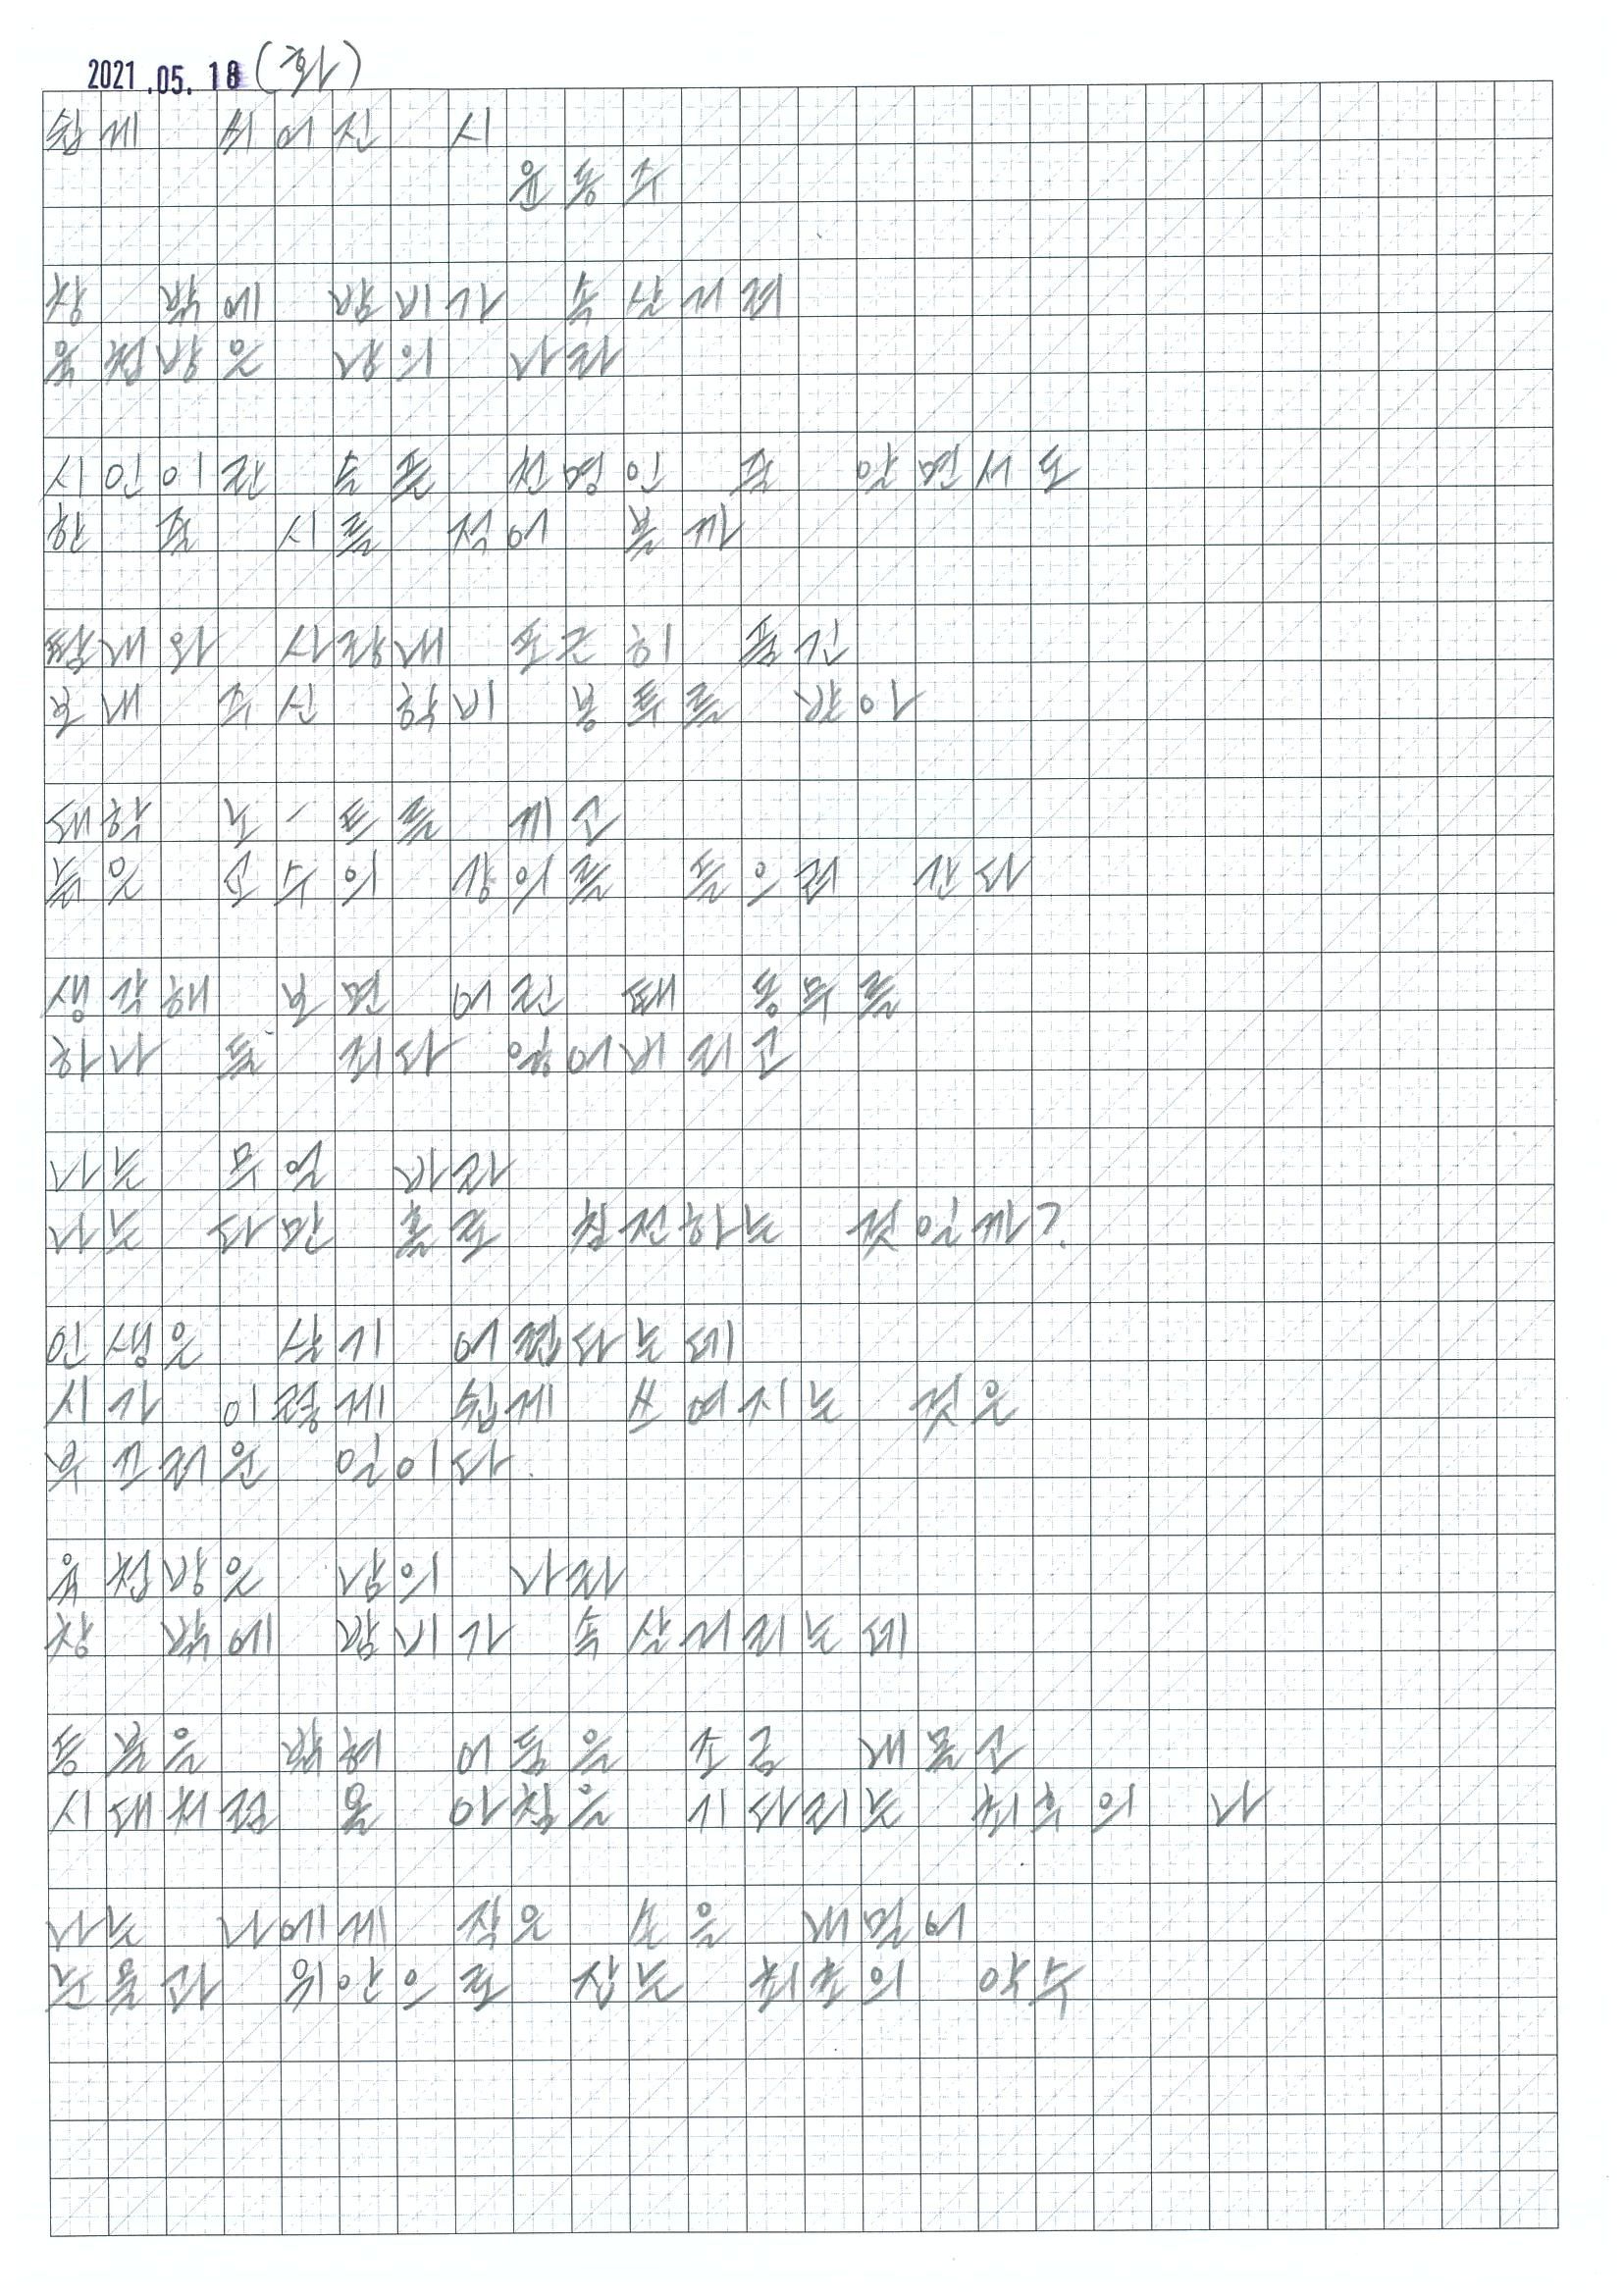 2021.05.18 (화)
쉽게 씌어진 시
윤동주
창 밖에 밤비가 속살거려
육첩방은 남의 나라
시인이란 슬픈 천명인 줄 알면서도
한 줄 시를 적어 볼까
땀내와 사랑내 포근히 품긴
보내 주신 학비 봉투를 받아
대학 노-트를 끼고
늙은 교수의 강의를 들으러 간다
생각해 보면 어린 때 동무를
하나 둘 죄다 잃어버리고
나는 무얼 바라
나는 다만 홀로 침전하는 것일까?
인생은 살기 어렵다는데
시가 이렇게 쉽게 쓰여지는 것은
부끄러운 일이다.
육첩방은 남의 나라
창 밖에 밤비가 속살거리는데
등불을 밝혀 어둠을 조금 내몰고
시대처럼 올 아침을 기다리는 최후의 나
나는 나에게 작은 손을 내밀어
눈물과 위안으로 잡는 최초의 악수